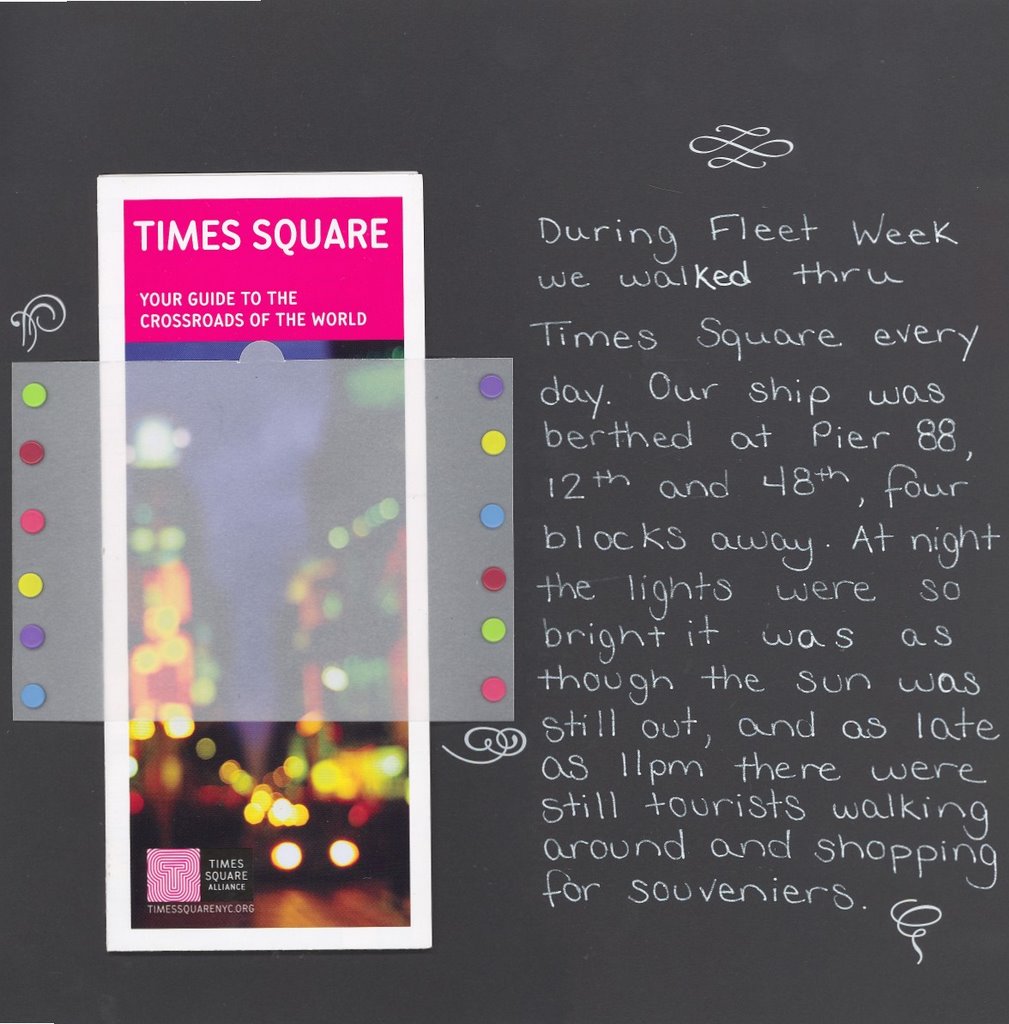 TIMES SQUARE
YOUR GUIDE TO THE
CROSSROADS OF THE WORLD
TIMES
SQUARE
ALLIANCE
TIMESSQUARENYC.ORG
During Fleet Week
we walked thru
Times Square every
day. Our ship was
berthed at Pier 88,
12th and 48th, four
blocks away. At night
the lights were so
bright it was as
though the sun was
still out, and as late
as 11pm there were
still tourists walking
around and shopping
for souveniers.